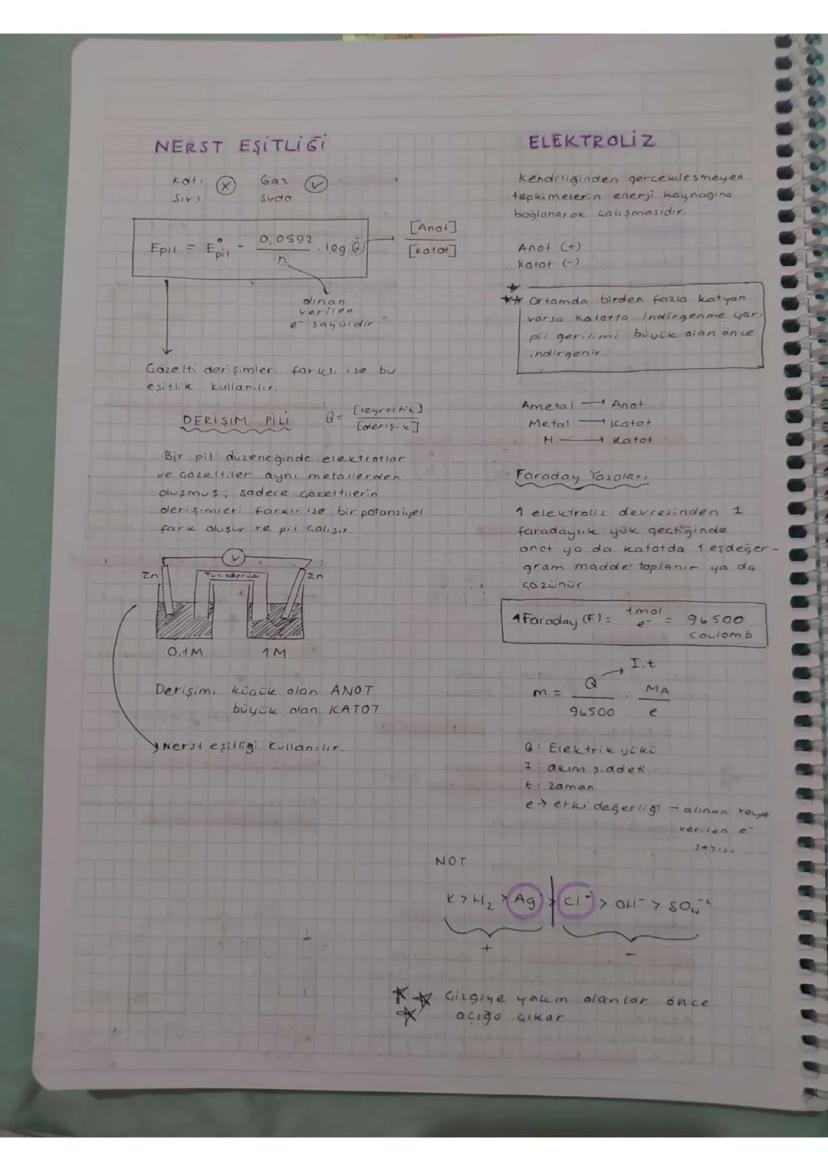 NERST EŞİTLİĞİ
Katı Gaz
Sıvı Suda
Epil = E°pil - 0,0592 / n . log Q → [Anot] / [Katot]
alınan
verilen
e⁻ sayısıdır
Çözelti derişimleri farklı ise bu
eşitlik kullanılır.
DERİŞİM PİLİ Q = [seyreltik] / [derişik]
Bir pil düzeneğinde elektrotlar
ve çözeltiler aynı metallerden
oluşmuş, sadece çözeltilerin
derişimleri farklı ise bir potansiyel
fark oluşur ve pil çalışır
V
Zn Tuz köprüsü Zn
0,1M 1M
Derişimi küçük olan ANOT
büyük olan KATOT
Nerst eşitliği kullanılır.
ELEKTROLİZ
Kendiliğinden gerçekleşmeyen
tepkimelerin enerji kaynağına
bağlanarak çalışmasıdır.
Anot (+)
Katot (-)
Ortamda birden fazla katyon
varsa katotta indirgenme yarı
pil gerilimi büyük olan önce
indirgenir.
Ametal → Anot
Metal → Katot
H → Katot
Faraday Yasaları
1 elektroliz devresinden 1
faradaylık yük geçtiğinde
anot ya da katotda 1 eşdeğer-
gram madde toplanır ya da
çözünür
1 Faraday (F) = 1mol e⁻ = 96500
Coulomb
I.t
m = Q / 96500 . MA / e
Q: Elektrik yükü
I: akım şiddeti
t: zaman
e → etki değerliği → alınan veya
verilen e⁻
sayısı.
NOT
K > H₂ > Ag > Cl⁻ > OH⁻ > SO₄⁻²
+ -
Çizgiye yakın olanlar önce
açığa çıkar